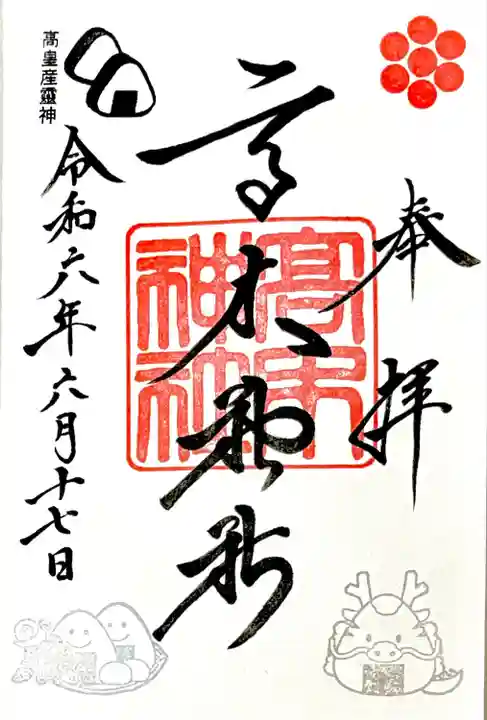 奉拝
高木神社
高木神社
令和六年六月十七日
高皇産靈神